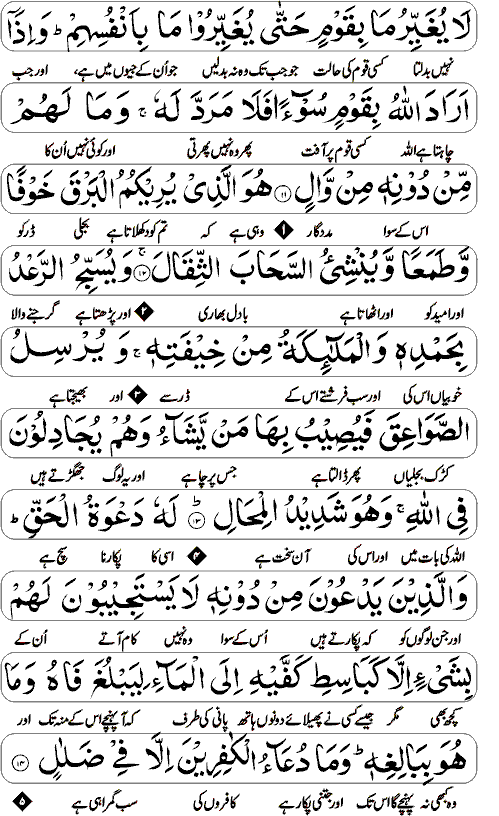 لَا يُغَيِّرُ مَا بِقَوْمٍ حَتّٰى يُغَيِّرُوْا مَا بِاَنْفُسِهِمْ ؕ وَاِذَاۤ
نہیں بدلتا کسی قوم کی حالت جو جب تک وہ نہ بدلیں جو اُن کے جیوں میں ہے، اور جب
اَرَادَ اللّٰهُ بِقَوْمٍ سُوْٓءًا فَلَا مَرَدَّ لَهٗ ۚ وَمَا لَهُمْ
چاہتا ہے اللہ کسی قوم پر آفت پھر وہ نہیں پھرتی اور کوئی نہیں اُن کا
مِّنْ دُوْنِهٖ مِنْ وَّالٍ ﴿۱۱﴾ هُوَ الَّذِيْ يُرِيْكُمُ الْبَرْقَ خَوْفًا
اس کے سوا مددگار ۱ وہی ہے کہ تم کو دکھلاتا ہے بجلی ڈر کو
وَّطَمَعًا وَّيُنْشِئُ السَّحَابَ الثِّقَالَ ﴿۱۲﴾ۚ وَيُسَبِّحُ الرَّعْدُ
اور امید کو اور اٹھاتا ہے بادل بھاری ۲ اور پڑھتا ہے گرجنے والا
بِحَمْدِهٖ وَالْمَلٰٓئِكَةُ مِنْ خِيْفَتِهٖ ۚ وَيُرْسِلُ
خوبیاں اس کی اور سب فرشتے اس کے ڈر سے ۳ اور بھیجتا ہے
الصَّوَاعِقَ فَيُصِيْبُ بِهَا مَنْ يَّشَآءُ وَهُمْ يُجَادِلُوْنَ
کڑک بجلیاں پھر ڈالتا ہے جس پر چاہے اور یہ لوگ جھگڑتے ہیں
فِي اللّٰهِ ۚ وَهُوَ شَدِيْدُ الْمِحَالِ ﴿۱۳﴾ؕ لَهٗ دَعْوَةُ الْحَقِّ ؕ
اللہ کی بات میں اور اس کی آن سخت ہے ۴ اسی کا پکارنا سچ ہے
وَالَّذِيْنَ يَدْعُوْنَ مِنْ دُوْنِهٖ لَا يَسْتَجِيْبُوْنَ لَهُمْ
اور جن لوگوں کو کہ پکارتے ہیں اُس کے سوا وہ نہیں کام آتے اُن کے
بِشَيْءٍ اِلَّا كَبَاسِطِ كَفَّيْهِ اِلَى الْمَآءِ لِيَبْلُغَ فَاهُ وَمَا
کچھ بھی مگر جیسے کسی نے پھیلائے دونوں ہاتھ پانی کی طرف کہ آ پہنچے اس کے منہ تک اور
هُوَ بِبَالِغِهٖ ؕ وَمَا دُعَآءُ الْكٰفِرِيْنَ اِلَّا فِيْ ضَلٰلٍ ﴿۱۴﴾
وہ کبھی نہ پہنچے گا اس تک اور جتنی پکار ہے کافروں کی سب گمراہی ہے ۵